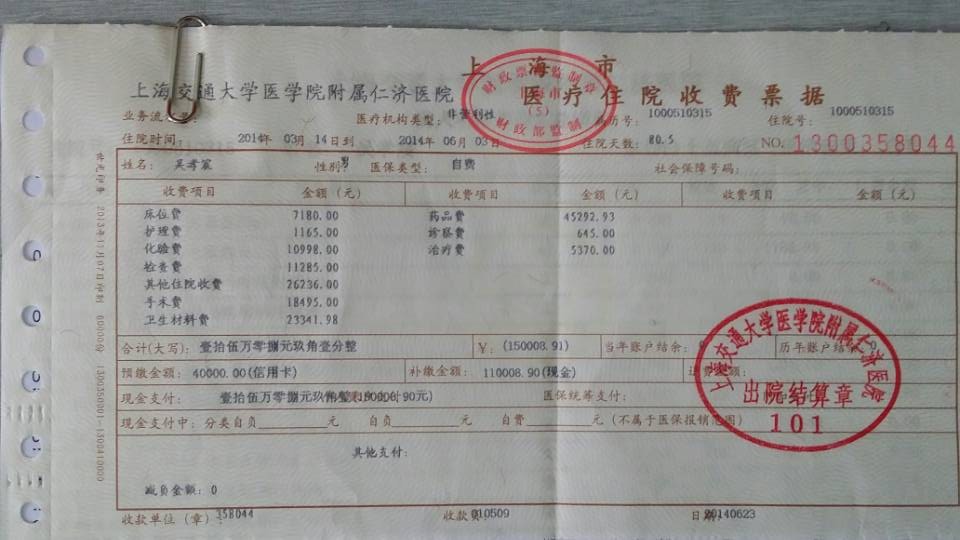 上海市
上海交通大学医学院附属仁济医院 医疗住院收费票据
财政票据监制章
(5)
财政部监制
业务流 医疗机构类型: 非营利性 病历号: 1000510315 住院号: 1000510315
住院时间: 2014年 03月 14日到 2014年 06月 03日 住院天数: 80.5 NO. 1300358044
姓名: 吴考宸 性别: 男 医保类型: 自费 社会保障号码:
收费项目 金额(元) 收费项目 金额(元) 收费项目 金额(元)
床位费 7180.00 药品费 45292.93
护理费 1165.00 诊疗费 645.00
化验费 10998.00 治疗费 5370.00
检查费 11285.00
其他住院收费 26236.00
手术费 18495.00
卫生材料费 23341.98
合计(大写): 壹拾伍万零捌元玖角壹分整 ¥: (150008.91) 当年账户结余: 历年账户结余
预缴金额: 40000.00(信用卡) 补缴金额: 110008.90(现金) 退费金额:
现金支付: 壹拾伍万零捌元玖角整(150008.90元) 医保统筹支付:
现金支付中: 分类自负 元 自负 元 自费 元 (不属于医保报销范围)
其他支付:
减负金额: 0
收款单位(章): 358044 收款员: 010509 日期: 20140623
上海交通大学医学院附属仁济医院
出院结算章
101
2013年11月07日印制 60000份 1300350001-1300410000